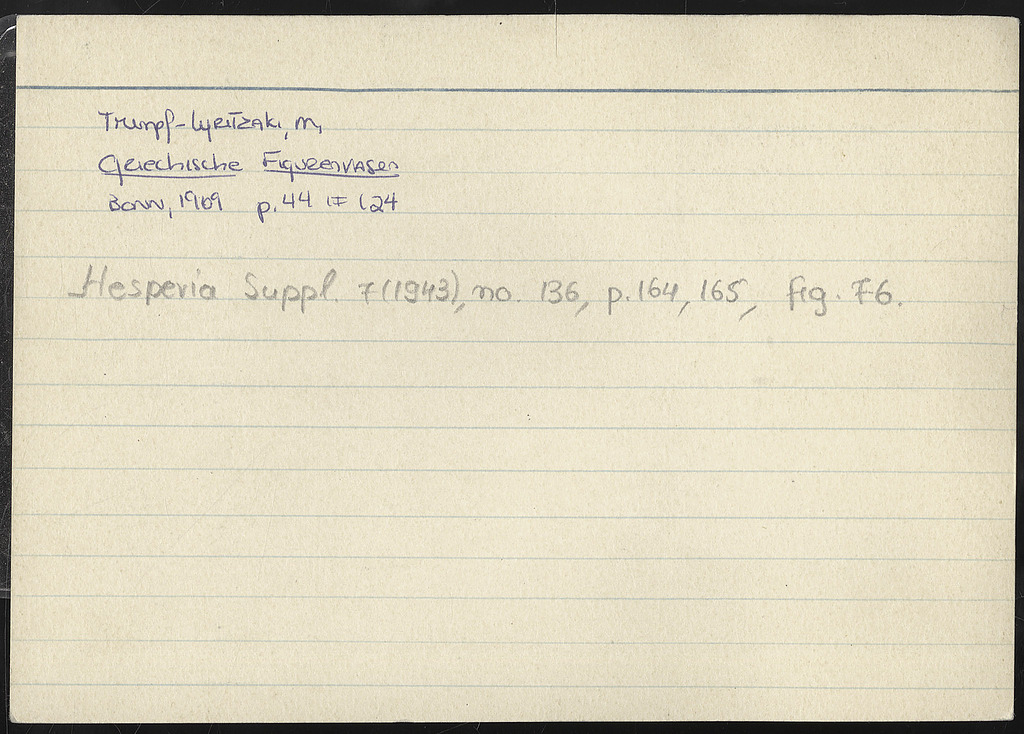 Trumpf-Lyritzaki, M,
Griechische Figurenvasen
Bonn, 1969 p. 44 # 124
Hesperia Suppl. 7 (1943), no. 136, p. 164, 165, fig. 76.